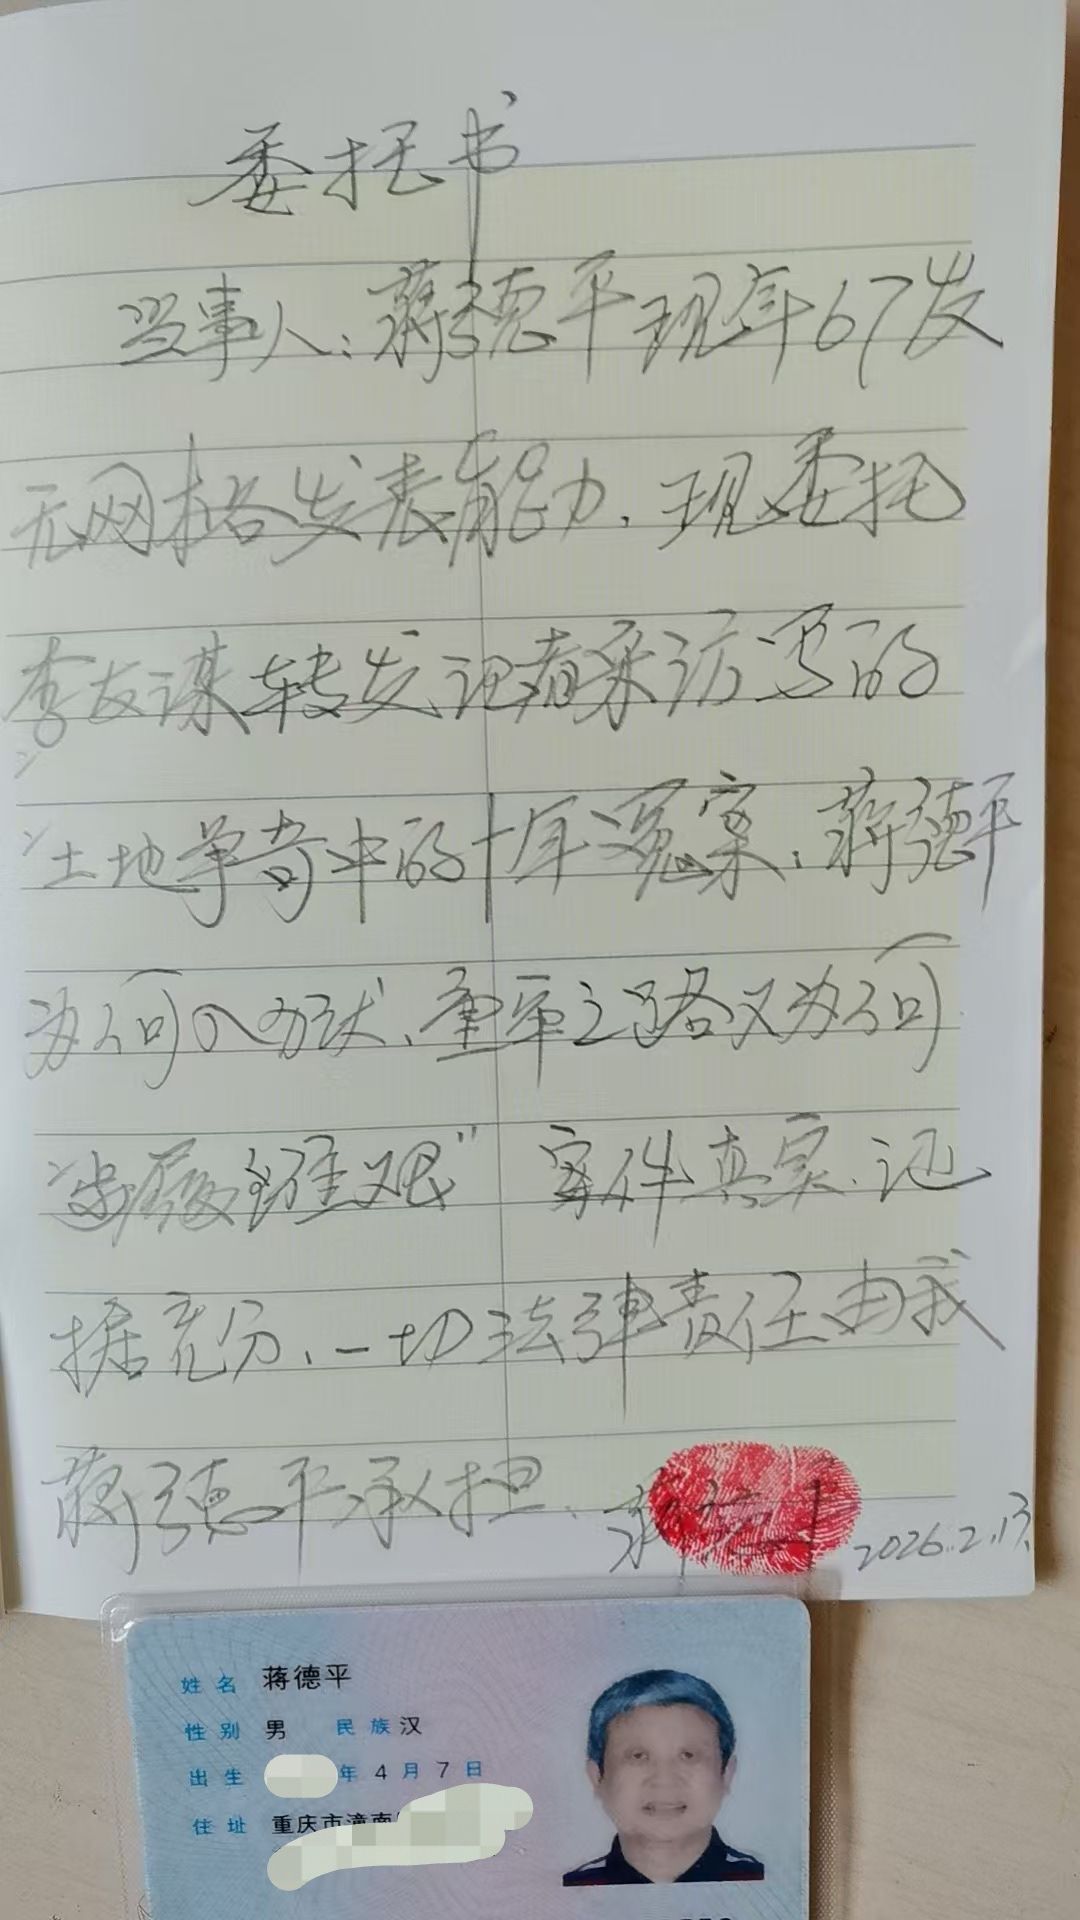 委托书
当事人:蒋德平现年67岁
无网格发表能力、现委托
李友谋转发记者采访写的
"土地争夺中的十年冤案:蒋德平
为何入狱、重审之路又为何
步履维艰" 案件真实、证
据充分、一切法律责任由我
蒋德平承担、
2026.2.13.
姓名 蒋德平
性别 男 民族 汉
出生 年 4 月 7 日
住址 重庆市潼南